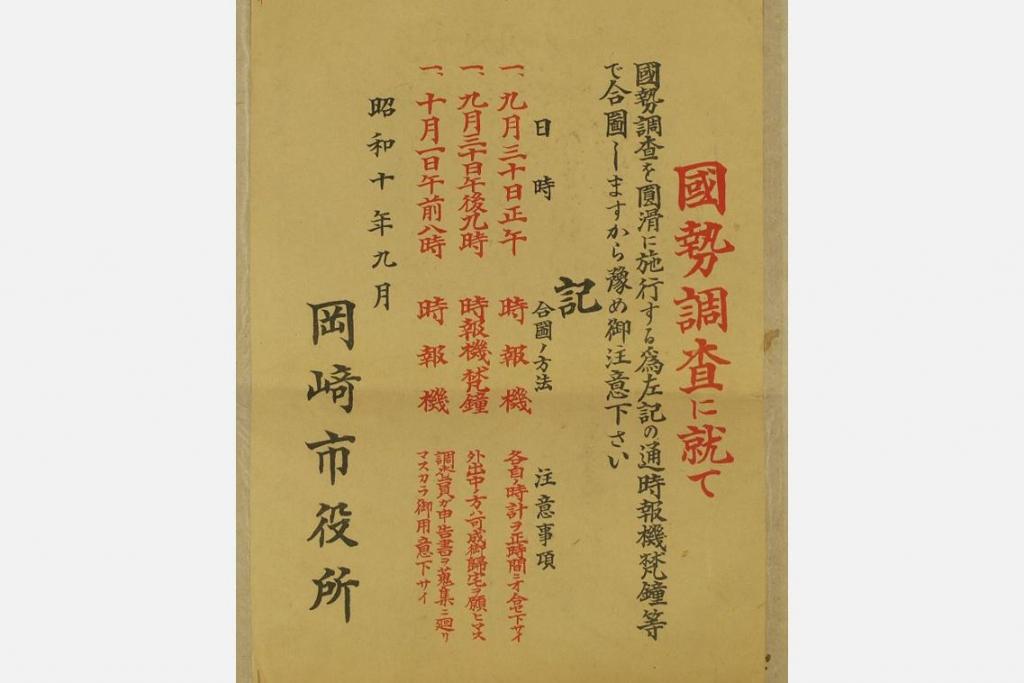 國勢調査に就て
國勢調査を圓滑に施行する爲左記の通時報機梵鐘等
で合圖しますから豫め御注意下さい
記
日時 合圖ノ方法 注意事項
一、九月三十日正午 時報機 各自ノ時計ヲ正時間ニオ合セ下サイ
一、九月三十日午後九時 時報機梵鐘 外出中ノ方ハ可成御歸宅ヲ願ヒマス
一、十月一日午前八時 時報機 調査員ガ申告書ヲ蒐集ニ廻リ
マスカラ御用意下サイ
昭和十年九月
岡崎市役所